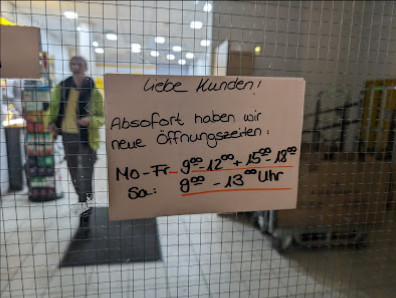 Liebe Kunden!
Absofort haben wir
neue Öffnungszeiten:
Mo-Fr- 9⁰⁰-12⁰⁰ + 15⁰⁰-18⁰⁰
Sa: 9⁰⁰ - 13⁰⁰ Uhr